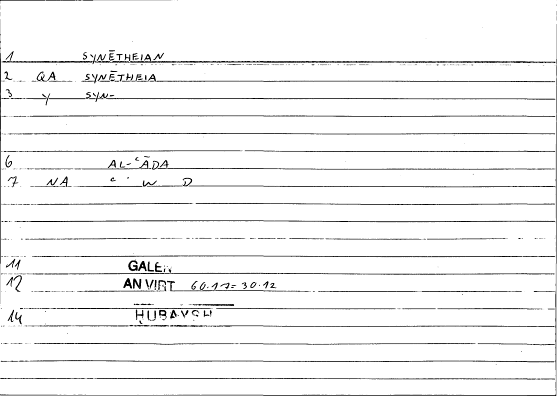 1 SYNĒTHEIAN
2 QA SYNĒTHEIA
3 Y SYN-
6 AL-ʿĀDA
7 NA ʿ W D
11 GALEN
12 AN VIRT 60.11=30.12
14 ḤUBAYSH